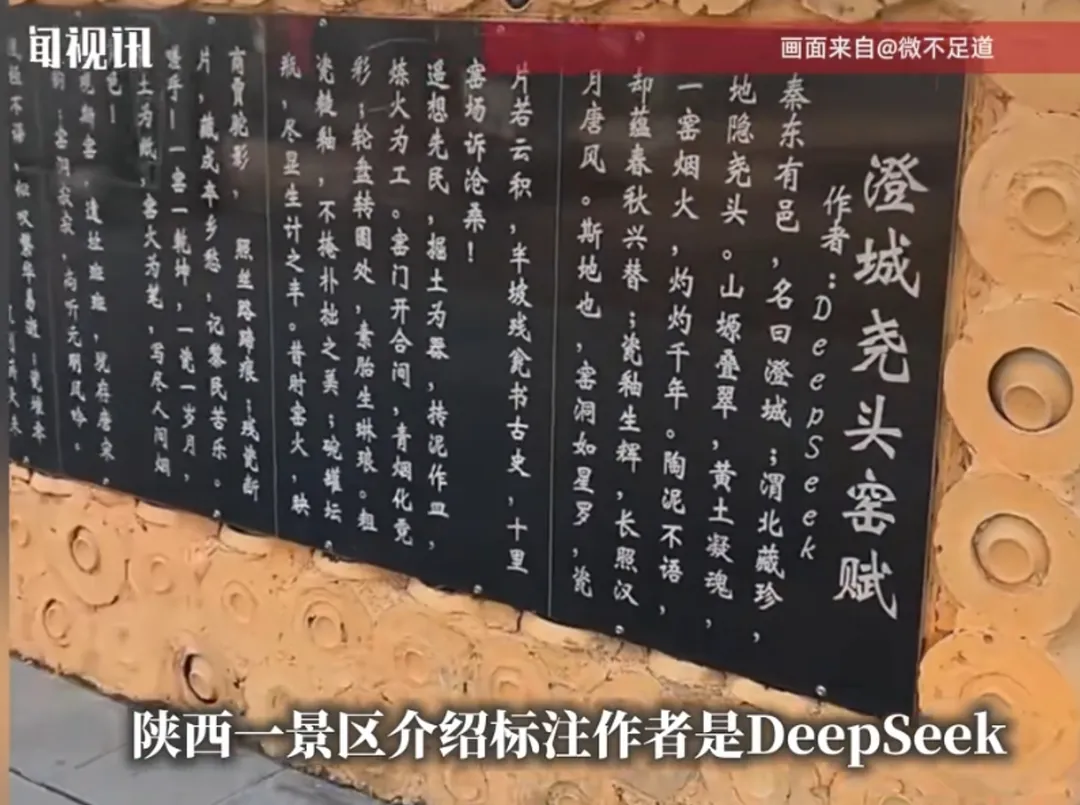 闻视讯
画面来自@微不足道
澄城尧头窑赋
作者：DeepSeek
秦东有邑，名曰澄城；渭北藏珍，
地隐尧头。山塬叠翠，黄土凝魂，
一窑烟火，灼灼千年。陶泥不语，
却蕴春秋兴替；瓷釉生辉，长照汉
月唐风。斯地也，窑洞如星罗，瓷
片若云积，半坡残瓮书古史，十里
窑场诉沧桑！
遥想先民，掘土为器，抟泥作皿，
炼火为工。窑门开合间，青烟化霓
彩；轮盘转圜处，素胎生琳琅。粗
瓷糙釉，不掩朴拙之美；碗罐坛
瓶，尽显生计之丰。昔时窑火，映
商贾驼影，照丝路蹄痕；残瓷断
片，藏成卒乡愁，记黎民苦乐。
嗟乎！一窑一乾坤，一瓷一岁月，
土为纸，窑火为笔，写尽人间烟
色！
观斯窑，遗址班班，犹存唐宋
韵；窑洞寂寂，尚听元明风吟。
不语，似叹繁华易逝；瓷堆
陕西一景区介绍标注作者是DeepSeek